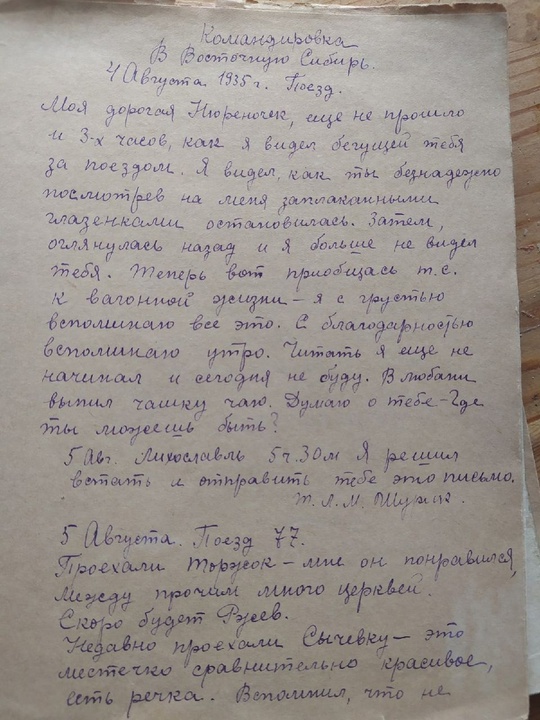 Командировка
В Восточную Сибирь.
4 Августа 1935 г. Поезд.
Моя дорогая Нюреночек, еще не прошло
и 3-х часов, как я видел бегущей тебя
за поездом. Я видел, как ты безнадежно
посмотрев на меня заплаканными
глазенками остановилась. Затем,
оглянулась назад и я больше не видел
тебя. Теперь вот приобщась т.с.
к вагонной жизни – я с грустью
вспоминаю все это. С благодарностью
вспоминаю утро. Читать я еще не
начинал и сегодня не буду. В Любани
выпил чашку чаю. Думаю о тебе – Где
ты можешь быть?
5 Авг. Лихославль 5 ч. 30 м Я решил
встать и отправить тебе это письмо.
Т. Л. М.
5 Августа. Поезд 77.
Проехали Торжок – мне он понравился,
Между прочим много церквей.
Скоро будет Ржев.
Недавно проехали Сычевку – это
местечко сравнительно красивое,
есть речка. Вспомнил, что не